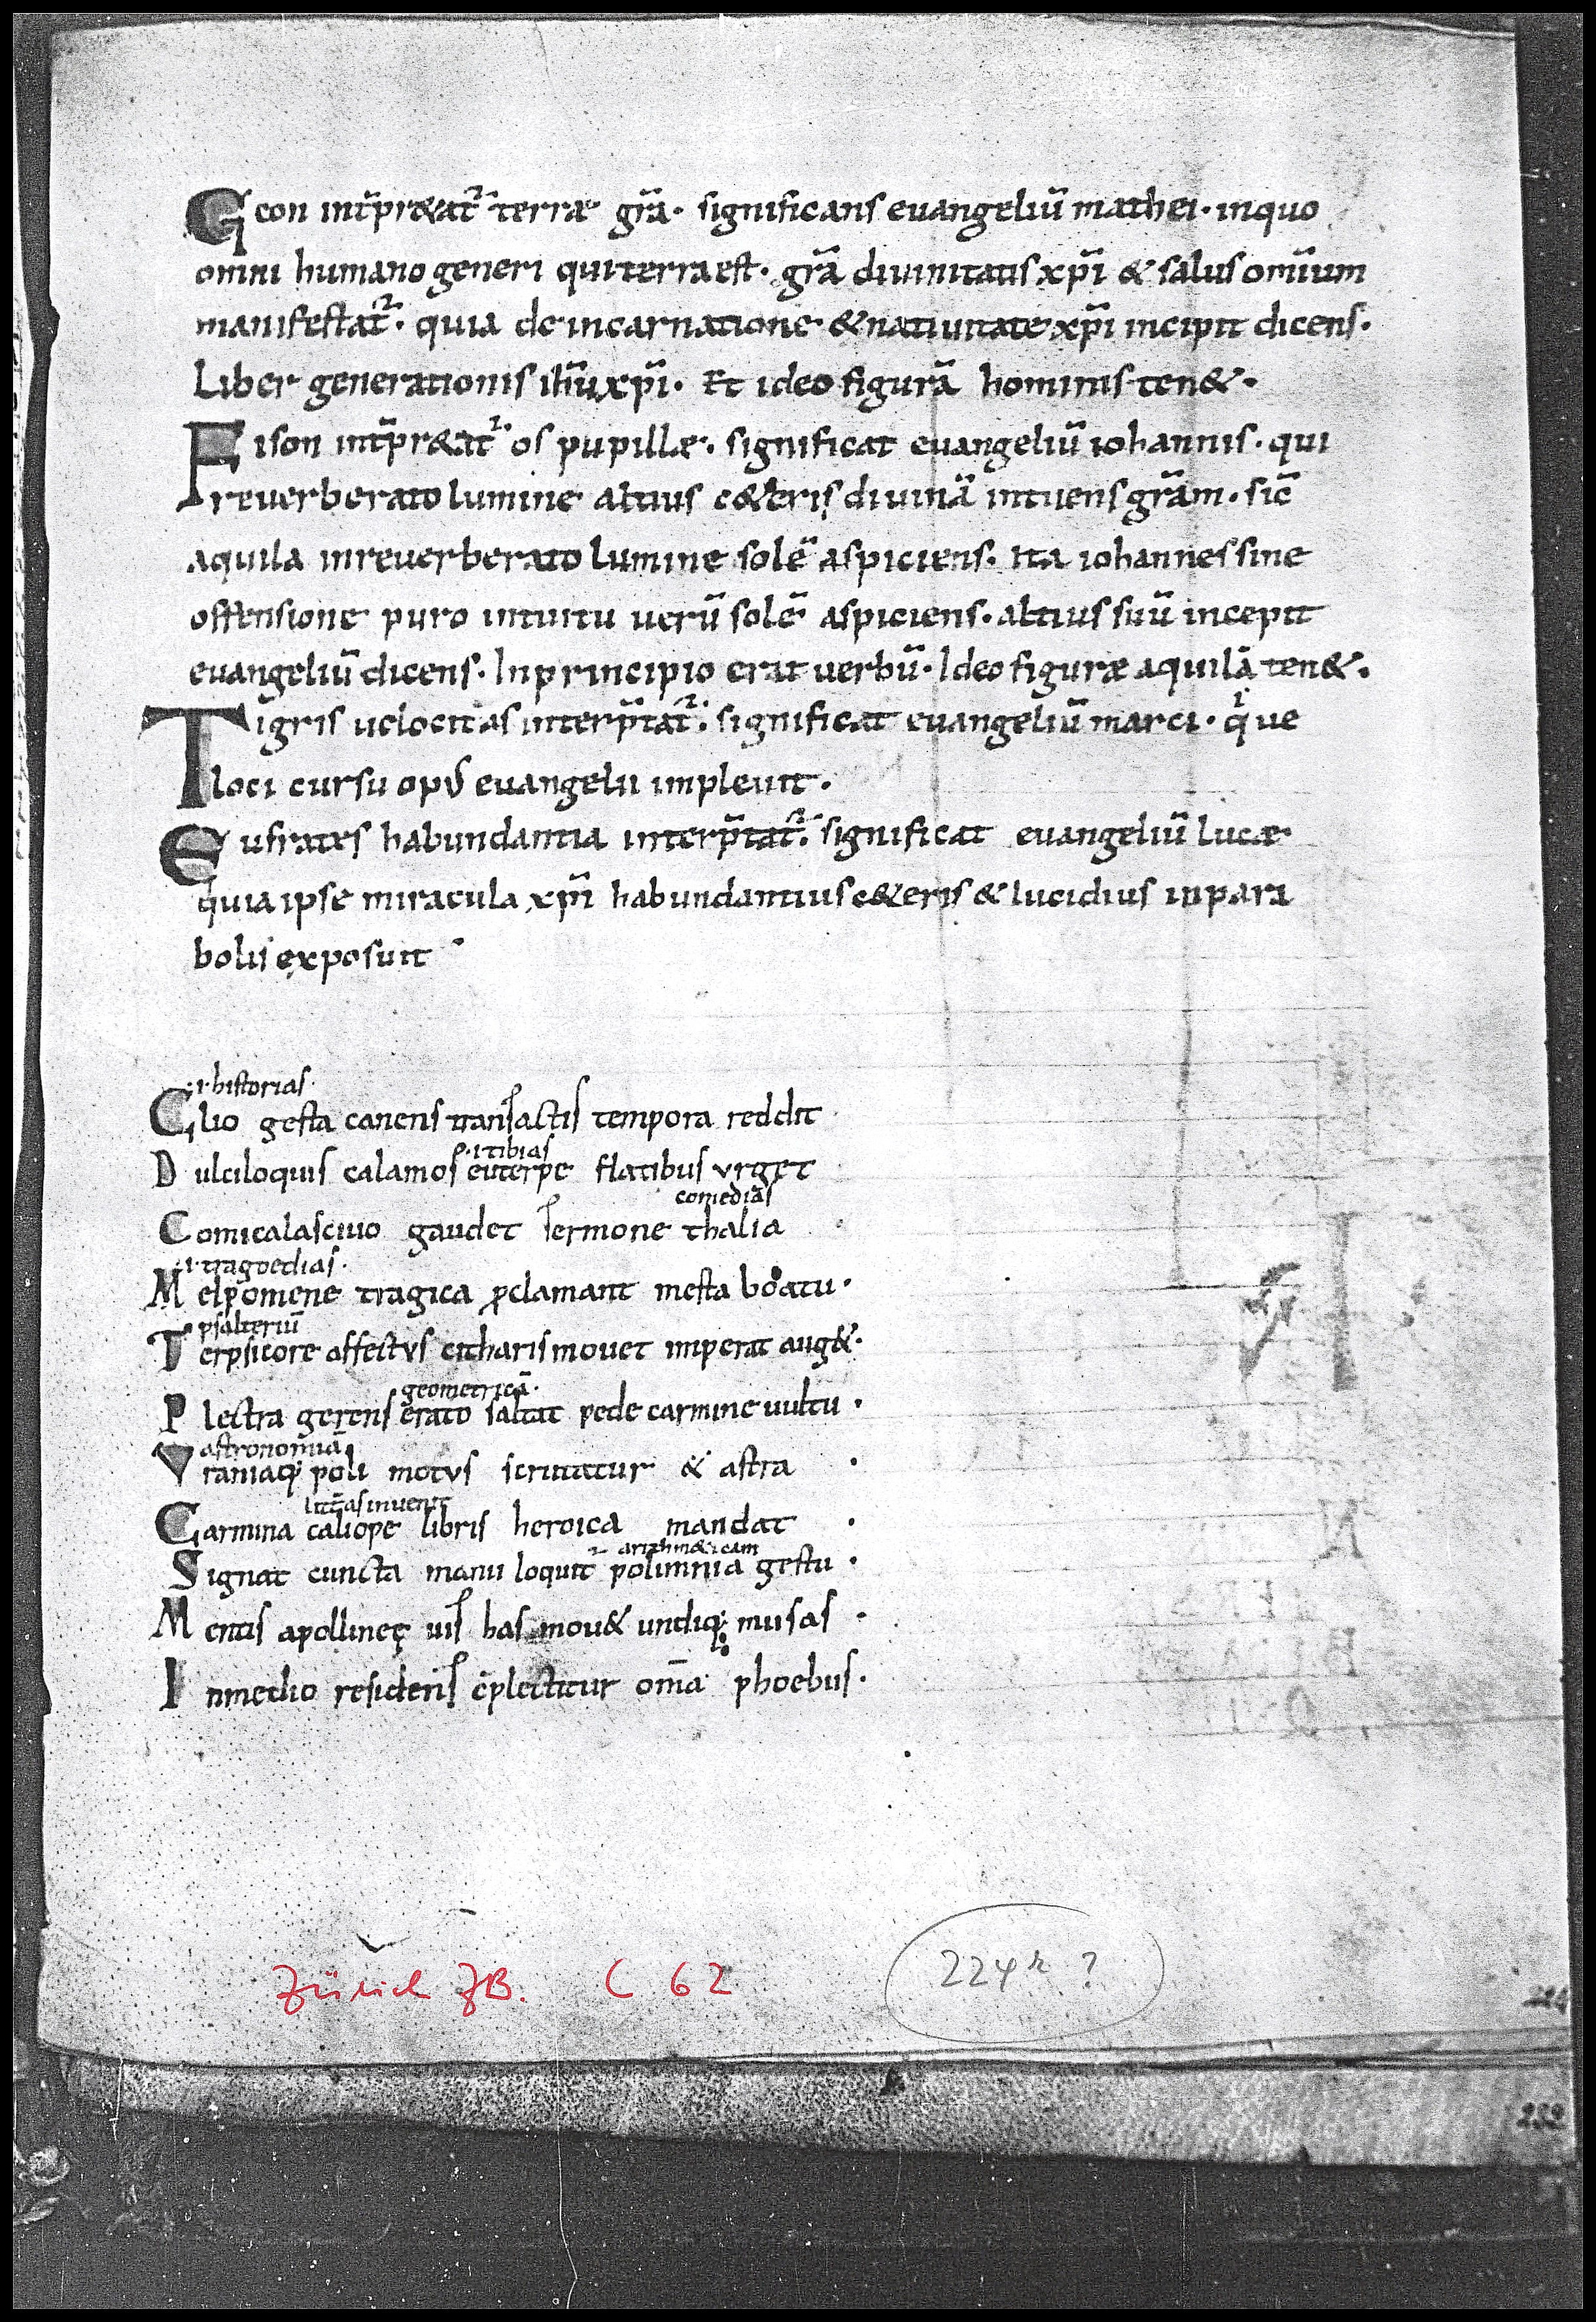 Geon int̄pr&at᷑ terræ gr̄a· significans evangeliū mathei· inquo
omni humano generi quiterraest· gr̄a divinitatis xp̄i & salus omīum
manifestat᷑· quia deincarnatione &nativitate xp̄i incipit dicens·
Liber generationis ih̄u xp̄i· Et ideo figurā hominis ten&·
Fison int̄pr&at᷑ os pupillæ· significat evangeliū iohannis· qui
reverberato lumine altius c&eris divinā intvens gr̄am· sic̄
aquila inreverberato lumine solē aspiciens· Ita iohannes sine
offensione puro intuitu verū solē aspiciens· altius suū incepit
evangeliū dicens· Inprincipio erat verbū· Ideo figuræ aquilā ten&·
Tigris velocitas interp̄tat᷑· significat evangeliū marci· qͥ ve
loci cursu opus evangelii implevit·
Eufrates habundantia interp̄tat᷑· significat evangeliū lucæ
quia ipse miracula xp̄i habundantius c&eris & lucidius inpara
bolis exposuit
·i·historias·
Clio gesta canens transactis tempora reddit
·i tibias
Dulciloquis calamos euterpe flatibus vrget
comediās
Comica lascivo gaudet sermone thalia
·i·tragoedias·
Melpomene tragica p̱clamant mesta boatu·
psalteriū
Terpsicore affectvs citharis movet imperat aug&·
geometricā·
Plectra gerens erato saltat pede carmine vultu·
astronomiā
Vraniaq; poli motvs scrutatur & astra·
litt̄as invenit
Carmina caliope libris heroica mandat·
arithm&icam
Signat cuncta manu loquit᷑ polimnia gestu·
Mentis apollineę vis has mou& undiq; musas·
Inmedio residens c̄plectitur om̄a phoebus·
Zürich ZB. C 62
224r ?